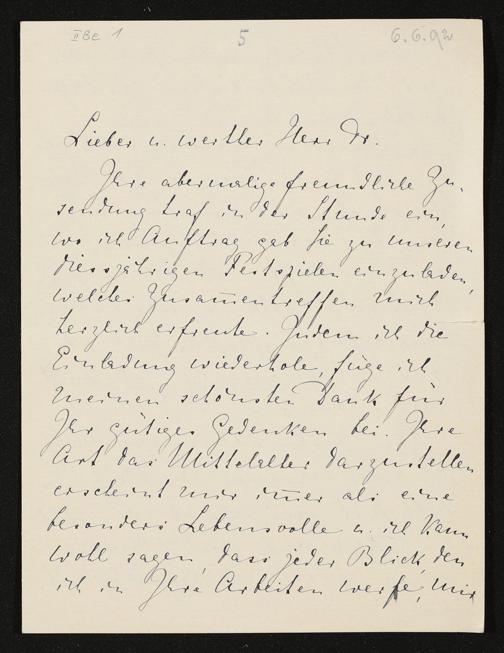 II Be 1
5
6.6.92
Lieber u. werther Herr Dr.
Ihre abermalige freundliche Zu-
sendung traf in der Stunde ein,
wo ich Auftrag gab Sie zu unseren
diesjährigen Festspielen einzuladen,
welches Zusam̅entreffen mich
herzlich erfreute. Indem ich die
Einladung wiederhole, füge ich
meinen schönsten Dank für
Ihr gütiges Gedenken bei. Ihre
Art das Mittelalter darzustellen
erscheint mir im̅er als eine
besonders Lebensvolle u. ich kann
wohl sagen, dass jeder Blick, den
ich in Ihre Arbeiten werfe, mir